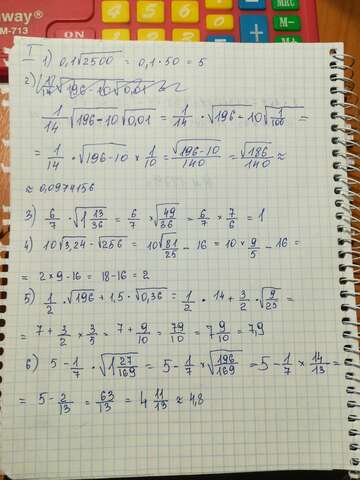 way
M-713
M-
M+
I 1) 0,1√2500 = 0,1 · 50 = 5
2) 1/14 √196 - 10√0,01
1/14 √196-10√0,01 = 1/14 · √196-10√1/100 =
= 1/14 · √196-10 × 1/10 = √196-10/140 = √186/140 ≈
≈ 0,0974156
3) 6/7 · √1 13/36 = 6/7 × √49/36 = 6/7 × 7/6 = 1
4) 10√3,24 - √256 = 10√81/25 - 16 = 10 × 9/5 - 16 =
= 2 × 9 - 16 = 18 - 16 = 2
5) 1/2 · √196 + 1,5 · √0,36 = 1/2 · 14 + 3/2 · √9/25 =
= 7 + 3/2 × 3/5 = 7 + 9/10 = 79/10 = 7 9/10 = 7,9
6) 5 - 1/7 · √1 27/169 = 5 - 1/7 × √196/169 = 5 - 1/7 × 14/13 =
= 5 - 2/13 = 63/13 = 4 11/13 ≈ 4,8